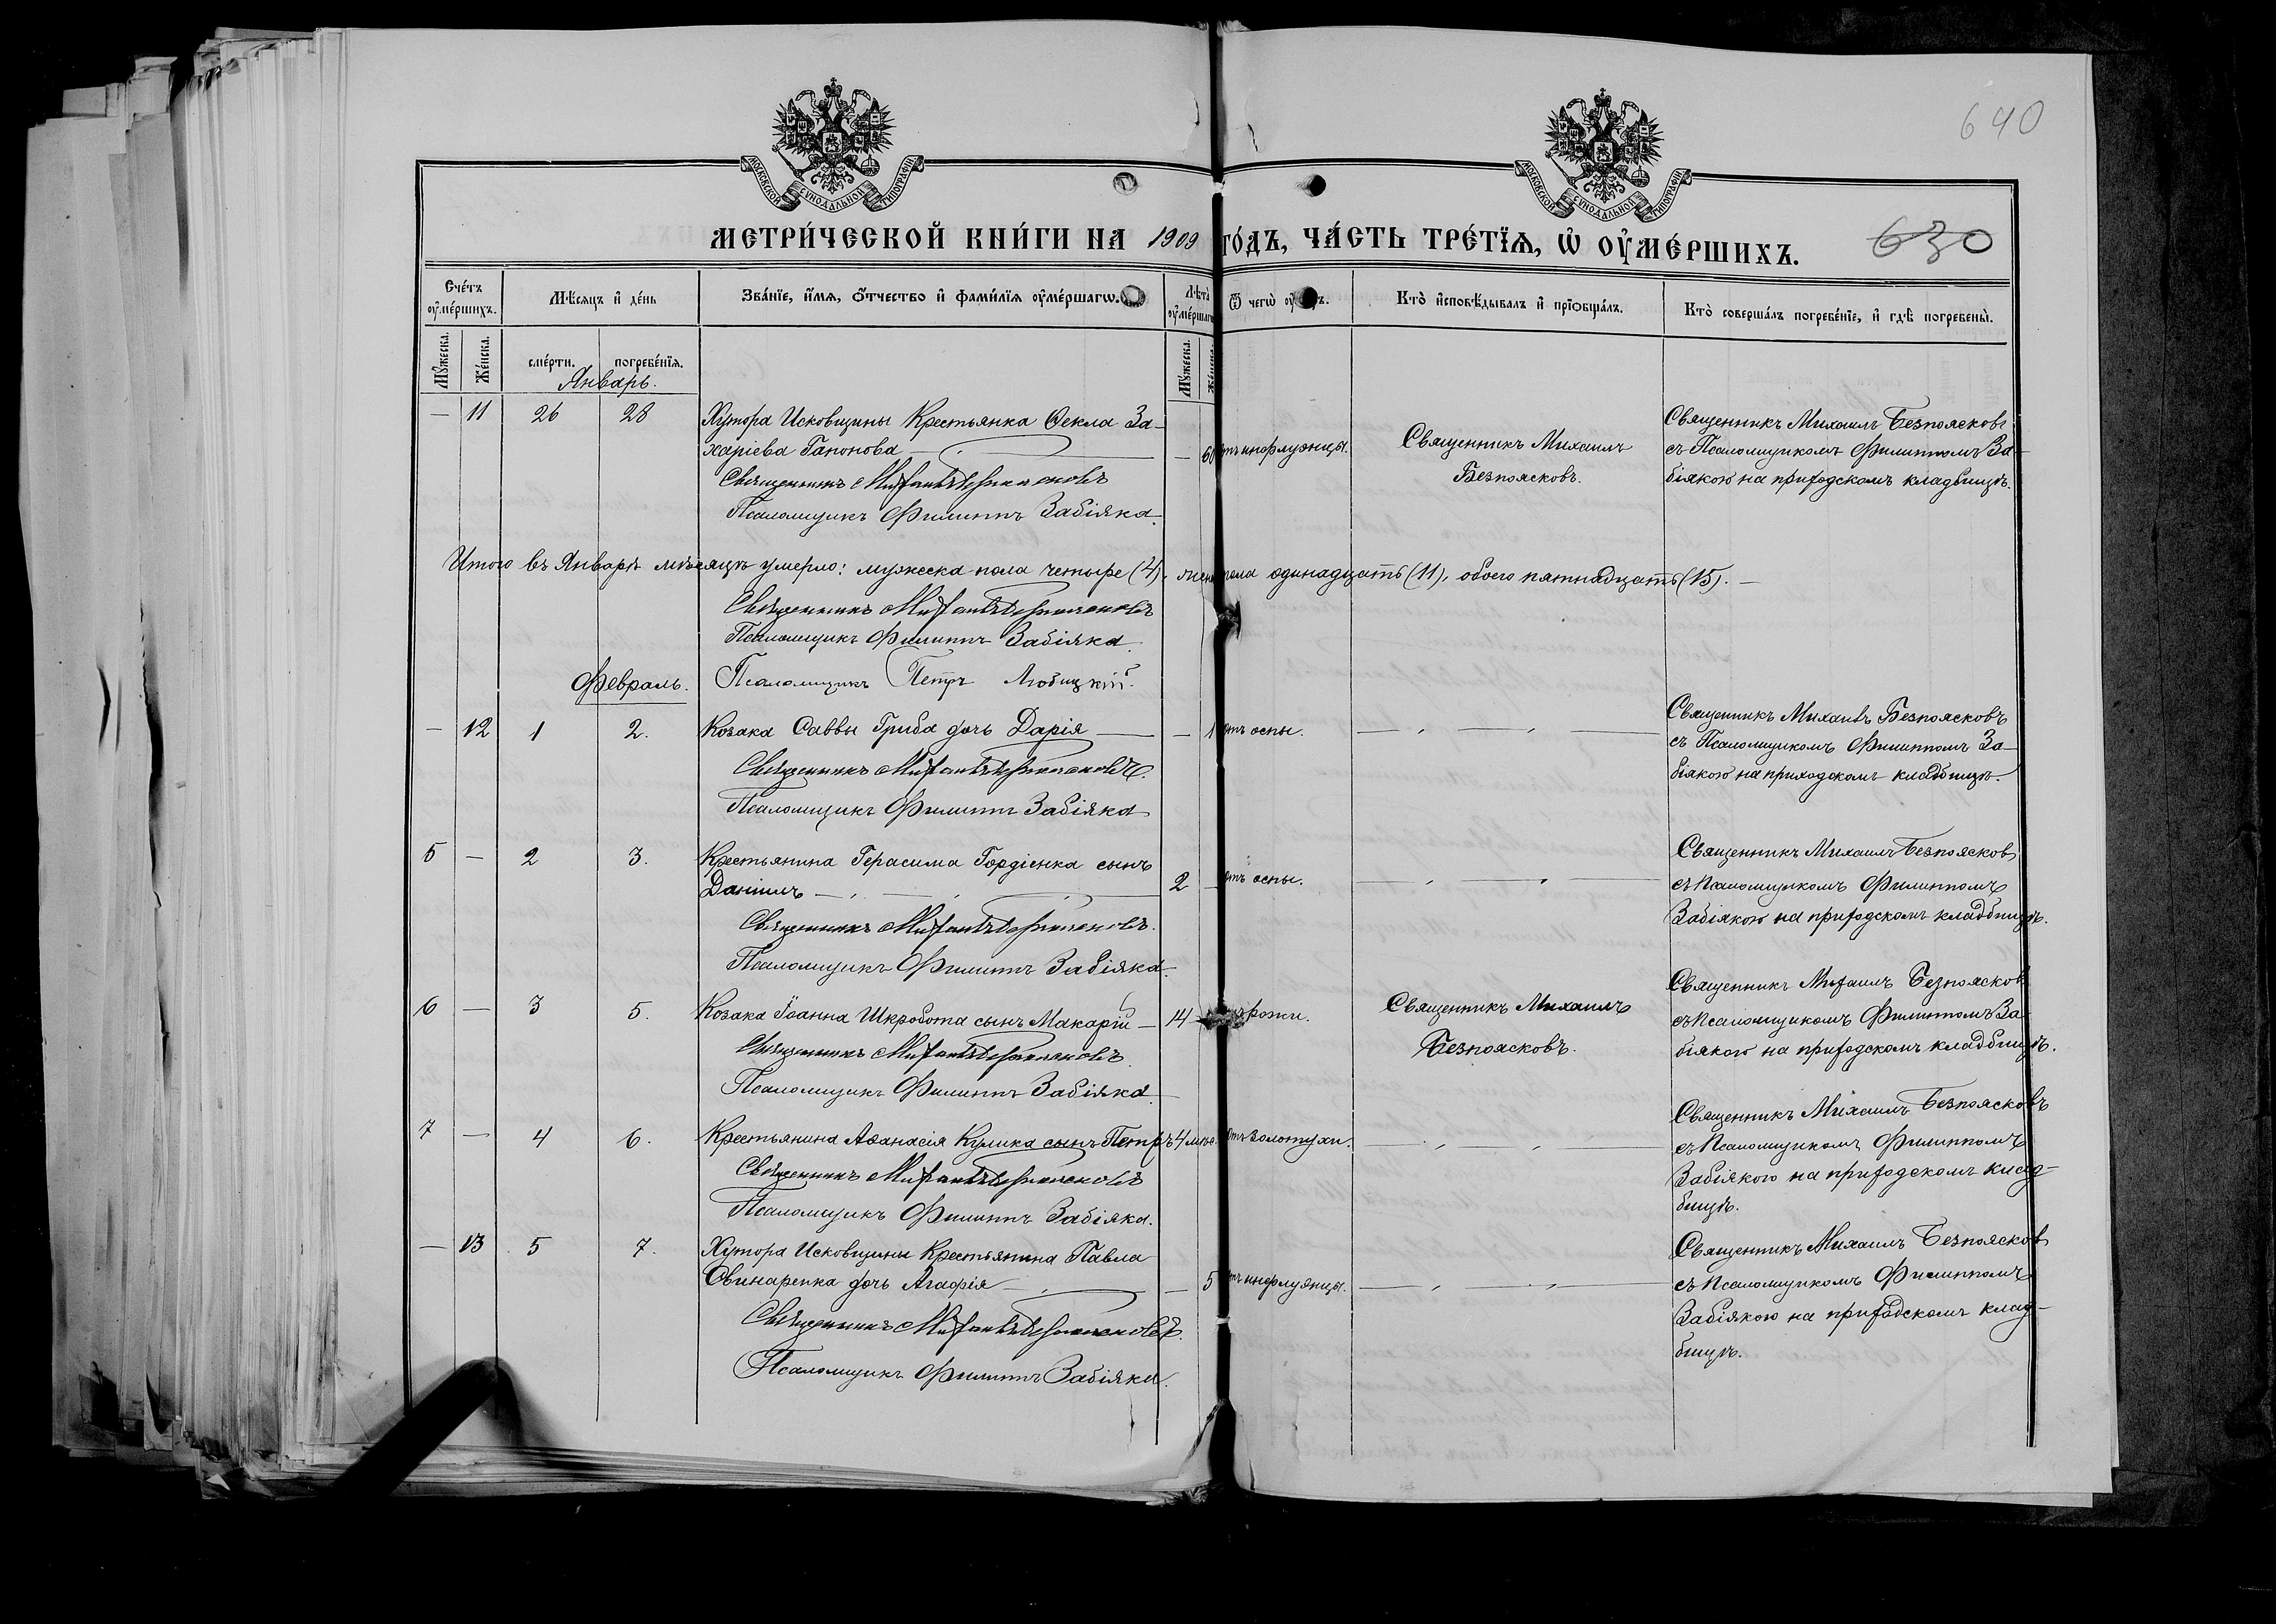 640
МОСКОВСКОЙ СУНОДАЛЬНОЙ ТИПОГРАФІИ
МОСКОВСКОЙ СУНОДАЛЬНОЙ ТИПОГРАФІИ
МЕТРИ́ЧЕСКОЙ КНИ́ГИ НА 1909 ГО́ДЪ, ЧА́СТЬ ТРЕ́ТЇѦ, Ѡ҆ ОУ҆МЕ́РШИХЪ.
630
Сче́тъ оу҆ме́ршихъ.
Мѣ́сяцъ и҆ де́нь
Зва́нїе, и҆́мѧ, ѻ҆́тчество и҆ фами́лїѧ оу҆ме́ршагѡ.
Лѣ́та оу҆ме́ршагѡ
Ѿ чегѡ̀
Кто̀ и҆сповѣ́дывалъ и҆ прїѡбща́лъ.
Кто̀ соверша́лъ погребе́нїе, и҆ гдѣ̀ погребены̀.
Мꙋ́жеска.
Же́нска.
сме́рти.
погребе́нїѧ.
Мꙋ́жеска.
Же́нска.
Январь.
— 11 26 28 Хутора Исковщины Крестьянка Ѳекла За-
харіева Гапонова — 60 отъ инфлуэнцы.
Священникъ Михаилъ
Безпоясковъ.
Священникъ Михаилъ Безпоясковъ
съ Псаломщикомъ Филиппомъ За-
біякою на приходскомъ кладбищѣ.
Священникъ Михаилъ Безпоясковъ
Псаломщикъ Филиппъ Забіяка.
Итого въ Январѣ мѣсяцѣ умерло: мужеска пола четыре (4), женска пола одинадцать (11), обоего пятнадцать (15). —
Священникъ Михаилъ Безпоясковъ
Псаломщикъ Филиппъ Забіяка.
Псаломщикъ Петръ Любицкій.
Февраль.
— 12 1 2. Козака Саввы Гриба дочь Дарія — — 1 отъ оспы.
Священникъ Михаилъ Безпоясковъ
съ Псаломщикомъ Филиппомъ За-
біякою на приходскомъ кладбищѣ.
Священникъ Михаилъ Безпоясковъ.
Псаломщикъ Филиппъ Забіяка
5 — 2 3. Крестьянина Герасима Гордіенка сынъ
Даніилъ — 2 — отъ оспы.
Священникъ Михаилъ Безпоясковъ
съ Псаломщикомъ Филиппомъ
Забіякою на приходскомъ кладбищѣ.
Священникъ Михаилъ Безпоясковъ.
Псаломщикъ Филиппъ Забіяка.
6 — 3 5. Козака Іоанна Шкробота сынъ Макарій — 14 — рожи.
Священникъ Михаилъ
Безпоясковъ.
Священникъ Михаилъ Безпоясковъ
съ Псаломщикомъ Филиппомъ За-
біякою на приходскомъ кладбищѣ.
Священникъ Михаилъ Безпоясковъ.
Псаломщикъ Филиппъ Забіяка.
7 — 4 6. Крестьянина Аѳанасія Кулика сынъ Петръ 4 мѣс. отъ золотухи.
Священникъ Михаилъ Безпоясковъ
съ Псаломщикомъ Филиппомъ
Забіякою на приходскомъ клад-
бищѣ.
Священникъ Михаилъ Безпоясковъ
Псаломщикъ Филиппъ Забіяка.
— 13 5 7. Хутора Исковщины Крестьянина Павла
Свинаренка дочь Агафія — — 5 отъ инфлуэнцы.
Священникъ Михаилъ Безпоясковъ
съ Псаломщикомъ Филиппомъ
Забіякою на приходскомъ клад-
бищѣ.
Священникъ Михаилъ Безпоясковъ.
Псаломщикъ Филиппъ Забіяка.